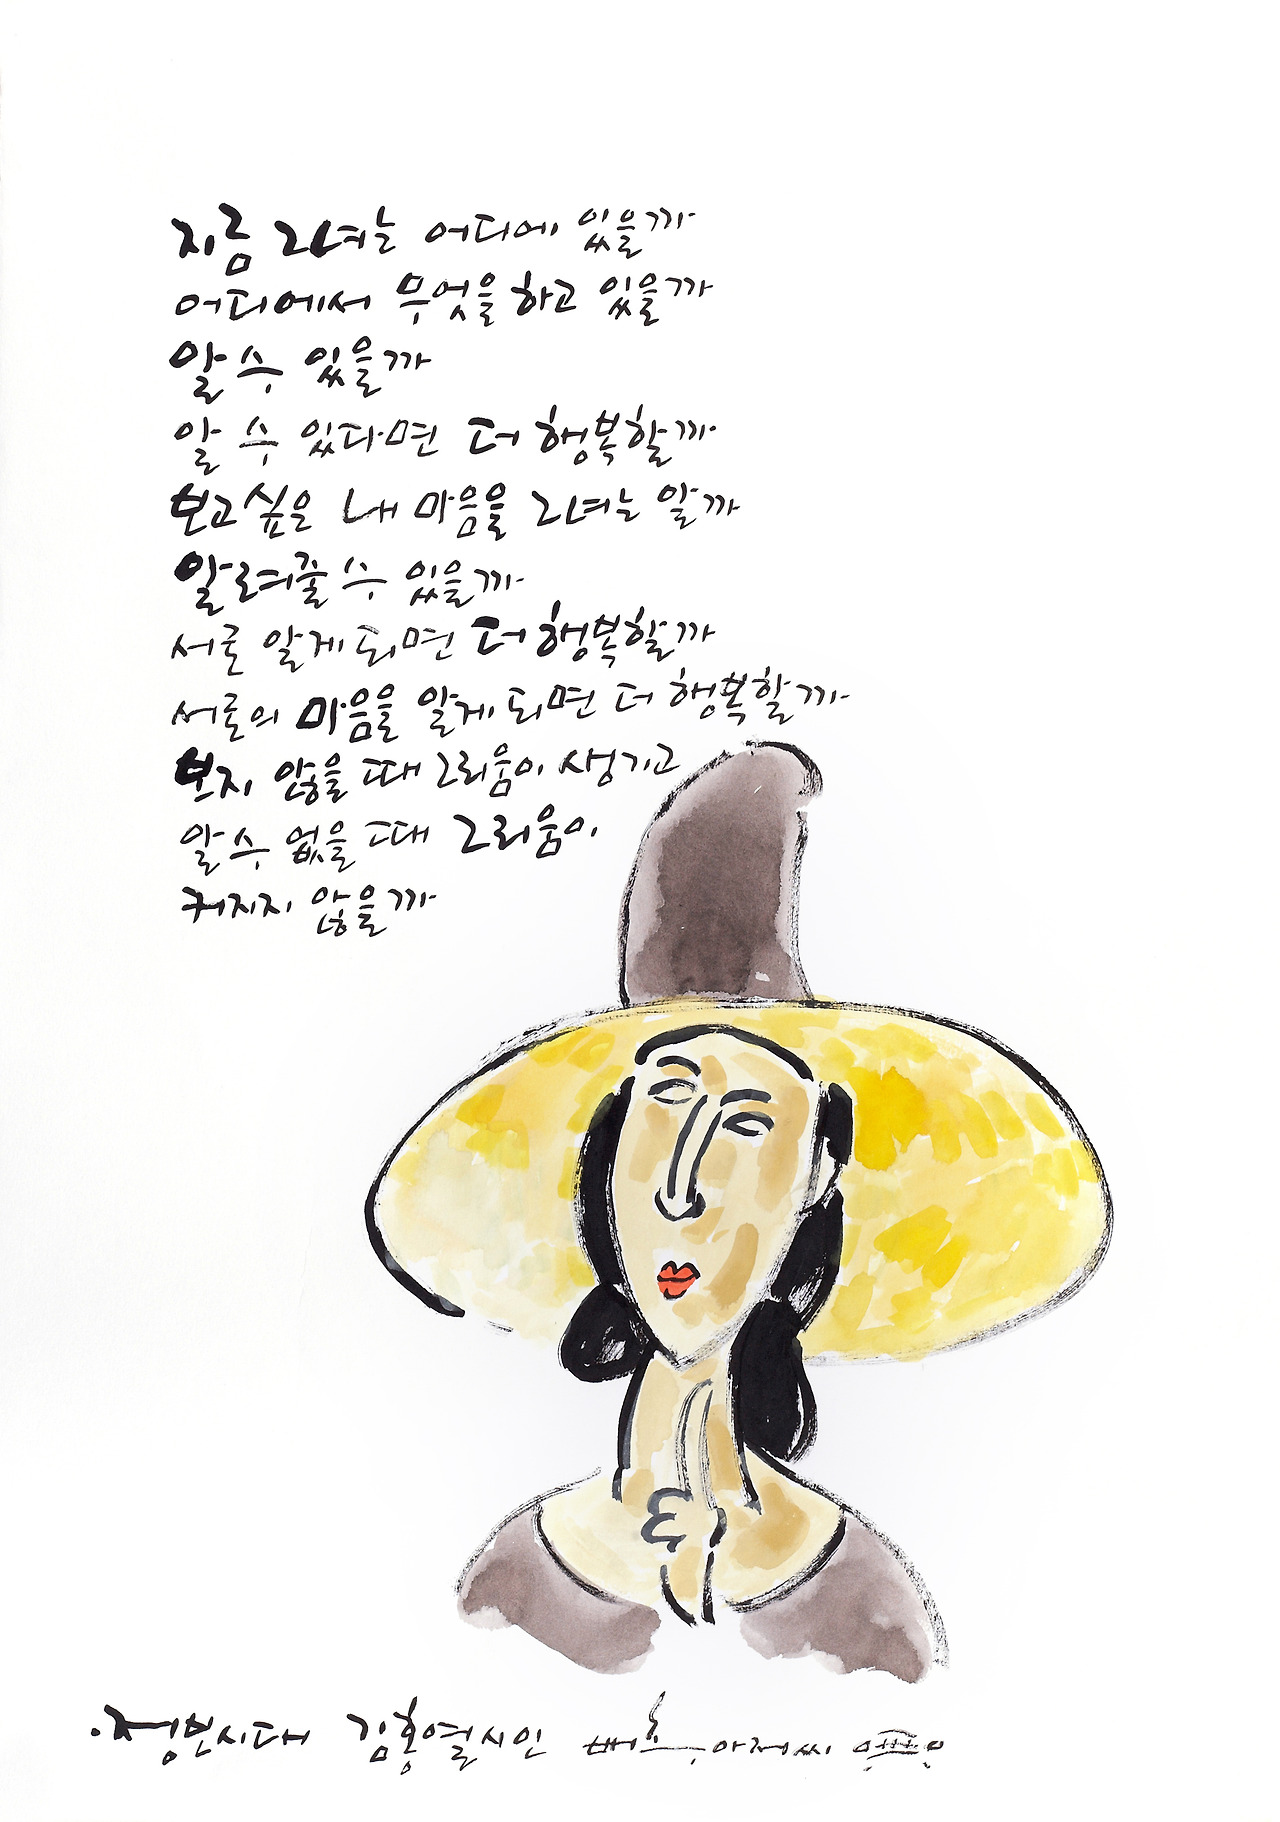 지금 그녀는 어디에 있을까
어디에서 무엇을 하고 있을까
알 수 있을까
알 수 있다면 더 행복할까
보고싶은 내 마음을 그녀는 알까
알려줄 수 있을까
서로 알게 되면 더 행복할까
서로의 마음을 알게 되면 더 행복할까
보지 않을 때 그리움이 생기고
알 수 없을 때 그리움이
커지지 않을까
김홍열 시인